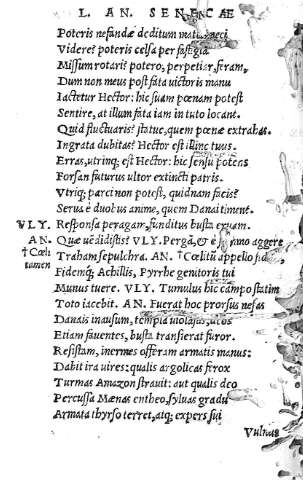 L. AN. SENECAE
Poteris nefandæ deditum
Videre? poteris celsa per fastigia
Missum rotari? potero, perpetiar, feram,
Dum non meus post fata victoris manu
Iactetur Hector: hic suam pœnam potest
Sentire, at illum fata iam in tuto locant.
Quid fluctuaris? statue, quem pœnæ extrahas.
Ingrata dubitas? Hector est illinc tuus.
Erras, utrinq; est Hector: hic sensu potens
Forsan futurus ultor extincti patris.
Vtriq; parci non potest, quidnam facis?
Serua è duobus anime, quem Danai timent.
VLY. Responsa peragam, funditus busta eruam.
AN. Quæ uēdidistis? VLY. Pergā, & è aggere
†Cœli Traham sepulchra. AN. †Cœlitū appello fidē,
tamen Fidemq; Achillis, Pyrrhe genitoris tui
Munus tuere. VLY. Tumulus hic campo statim
Toto iacebit. AN. Fuerat hoc prorsus nefas
Danais inausum, templa uiolastis,
Etiam fauentes, busta transierat furor.
Resistam, inermes offeram armatis manus:
Dabit ira uires: qualis argolicas ferox
Turmas Amazon strauit: aut qualis deo
Percussa Mænas entheo, syluas gradu
Armata thyrso terret, atq; expers sui
Vulnus